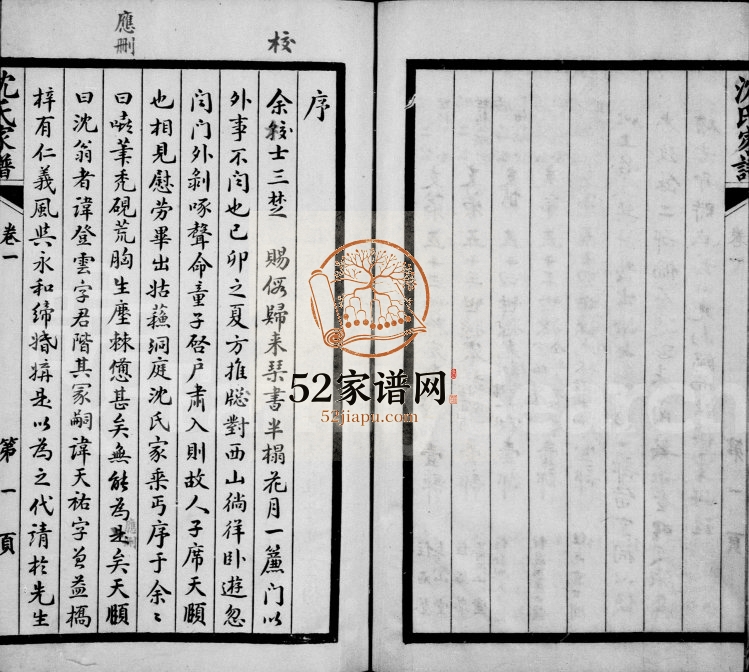 校
應刪
序
余較士三楚 賜假歸來琴書半榻花月一簾門以
外事不問也己卯之夏方推牕對西山徜徉卧遊忽
閆門外剝啄聲命童子啓户肅入則故人子席天願
也相見慰劳畢出姑蘓洞庭沈氏家乘丐序于余〻
曰嘻筆秃硯荒胸生塵棘憊甚矣無能為是矣天願
曰沈翁者諱登雲字君階其冢嗣諱天祐字 益橋
梓有仁義風與永和締婚 是以為之代請於先生
應刪
沈氏家譜
卷一
第一頁
沈氏家譜
52家谱网
52jiapu.com